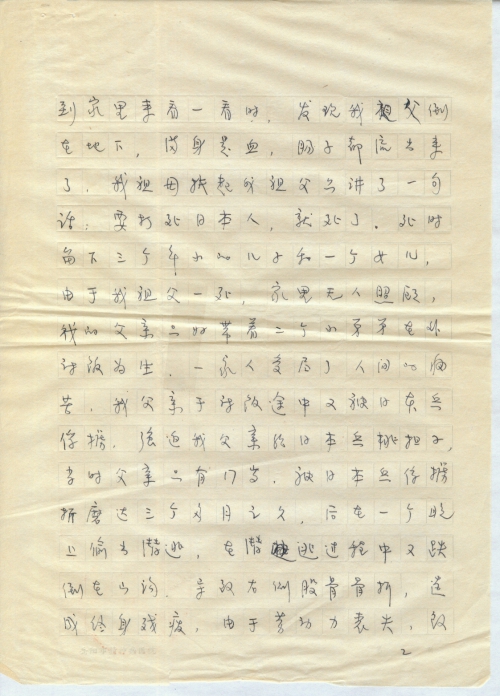 到家里来看一看时，发现我祖父倒
在地下，满身是血，肠子都流出来
了，我祖母扶起我祖父只讲了一句
话：要打死日本人，就死了。死时
留下三个年小的儿子和一个女儿，
由于我祖父一死，家里无人照顾，
我的父亲只好带着二个小弟弟在外
讨饭为生，一家人受尽了人间的痛
苦，我父亲于讨饭途中又被日本兵
俘掳，强迫我父亲给日本兵挑担子，
当时父亲只有17岁，被日本兵俘掳
折磨达三个多月之久，后在一个晚
上偷出潜逃，在潜逃过程中又跌
倒在山沟，导致右侧股骨骨折，造
成终身残疾，由于劳动力丧失，的
2